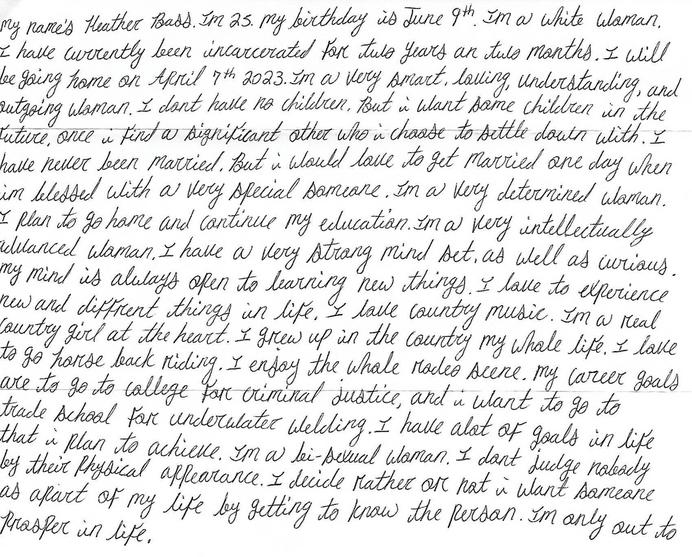 my name's Heather Bass. Im 25. my birthday is June 9th. Im a white woman.
I have currently been incarcerated for two years an two months. I will
be going home on April 7th 2023. Im a very smart, loving, understanding, and
outgoing woman. I dont have no children. But i want some children in the
future, once i find a significant other who i choose to settle down with. I
have never been married. But i would love to get married one day when
im blessed with a very special someone. Im a very determined woman.
I plan to go home and continue my education. Im a very intellectually
advanced woman. I have a very strong mind set, as well as curious.
my mind is always open to learning new things. I love to experience
new and diffrent things in life. I love country music. Im a real
country girl at the heart. I grew up in the country my whole life. I love
to go horse back riding. I enjoy the whole rodeo scene. my career goals
are to go to college for criminal justice, and i want to go to
trade school for underwater welding. I have alot of goals in life
that i plan to achieve. Im a bi-sexual woman. I dont judge nobody
by their physical appearance. I decide rather or not i want someone
as apart of my life by getting to know the person. Im only out to
prosper in life.